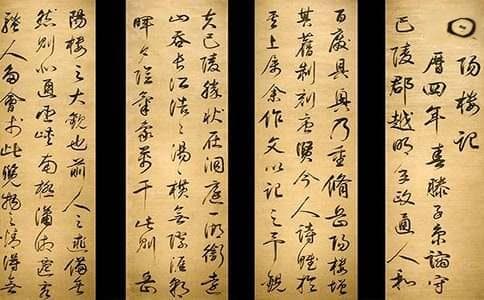 陽樓記
曆四年春滕子京謫守
巴陵郡越明年政通人和
百廢具興乃重脩岳陽樓增
其舊制刻唐賢今人詩賦於
其上屬余作文以記之予觀
夫巴陵勝狀在洞庭一湖銜遠
山吞長江浩〻湯〻橫無際涯朝
暉夕陰氣象萬千此則岳
陽樓之大觀也前人之述備矣
然則北通巫峽南極瀟湘遷客
騷人多會於此覽物之情得無